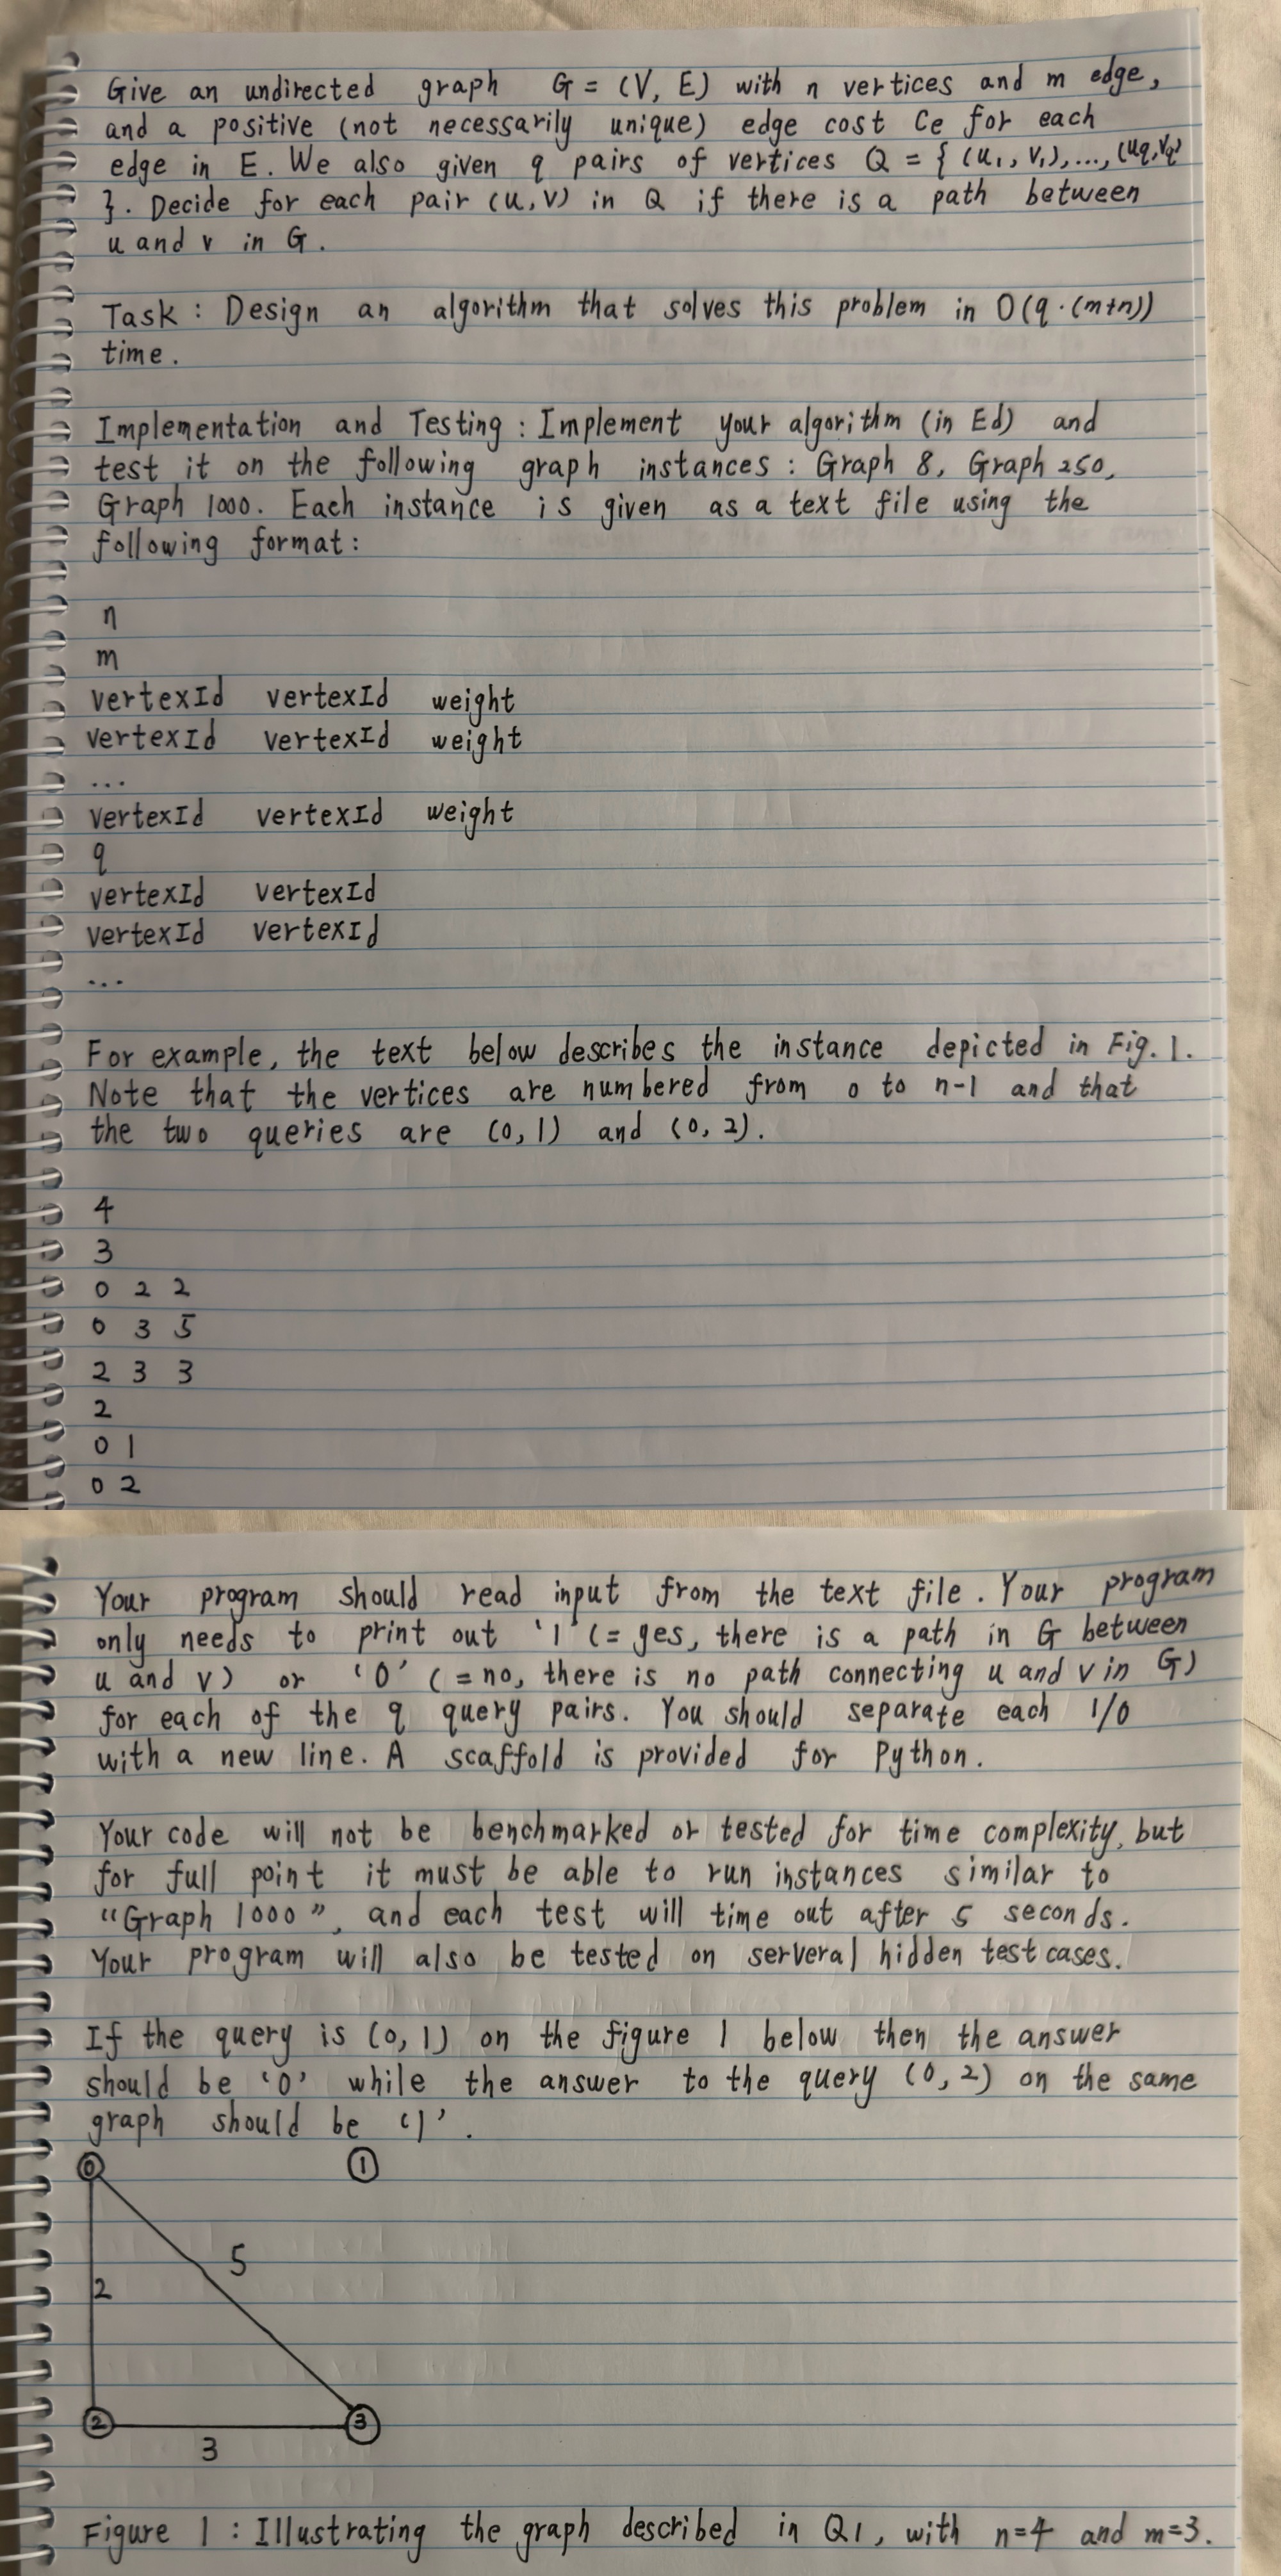 Give an undirected graph G = (V, E) with n vertices and m edge,
and a positive (not necessarily unique) edge cost Ce for each
edge in E. We also given q pairs of vertices Q = { (u1, v1), ..., (uq, vq)
}. Decide for each pair (u, v) in Q if there is a path between
u and v in G.
Task : Design an algorithm that solves this problem in O(q·(m+n))
time.
Implementation and Testing : Implement your algorithm (in Ed) and
test it on the following graph instances : Graph 8, Graph 250,
Graph 1000. Each instance is given as a text file using the
following format :
n
m
vertexId vertexId weight
vertexId vertexId weight
...
vertexId vertexId weight
q
vertexId vertexId
vertexId vertexId
...
For example, the text below describes the instance depicted in Fig. 1.
Note that the vertices are numbered from 0 to n-1 and that
the two queries are (0, 1) and (0, 2).
4
3
0 2 2
0 3 5
2 3 3
2
0 1
0 2
Your program should read input from the text file. Your program
only needs to print out '1' (= yes, there is a path in G between
u and v) or '0' (= no, there is no path connecting u and v in G)
for each of the q query pairs. You should separate each 1/0
with a new line. A scaffold is provided for Python.
Your code will not be benchmarked or tested for time complexity, but
for full point it must be able to run instances similar to
"Graph 1000", and each test will time out after 5 seconds.
Your program will also be tested on serveral hidden test cases.
If the query is (0, 1) on the figure 1 below then the answer
should be '0' while the answer to the query (0, 2) on the same
graph should be '1'.
0 1
5
2
2 3
3
Figure 1 : Illustrating the graph described in Q1, with n=4 and m=3.